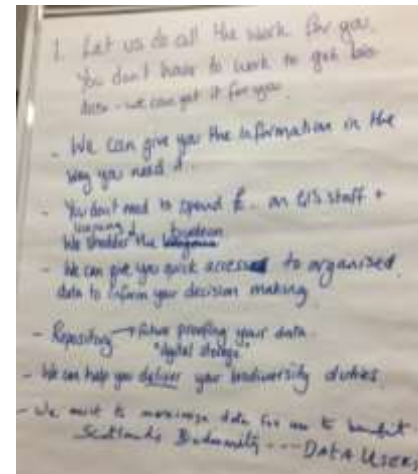 1. Let us do all the work for you.
You don't have to work to get bio
data - we can get it for you.
- We can give you the information in the
way you need it.
- You don't need to spend £.. on GIS staff +
We shoulder the burden
- We can give you quick access to organised
data to inform your decision making
- Repository → future proofing your data
"digital storage"
- We can help you deliver your biodiversity duties.
- We want to maximise data for use to benefit
Scotland's Biodiversity --- DATA USERS